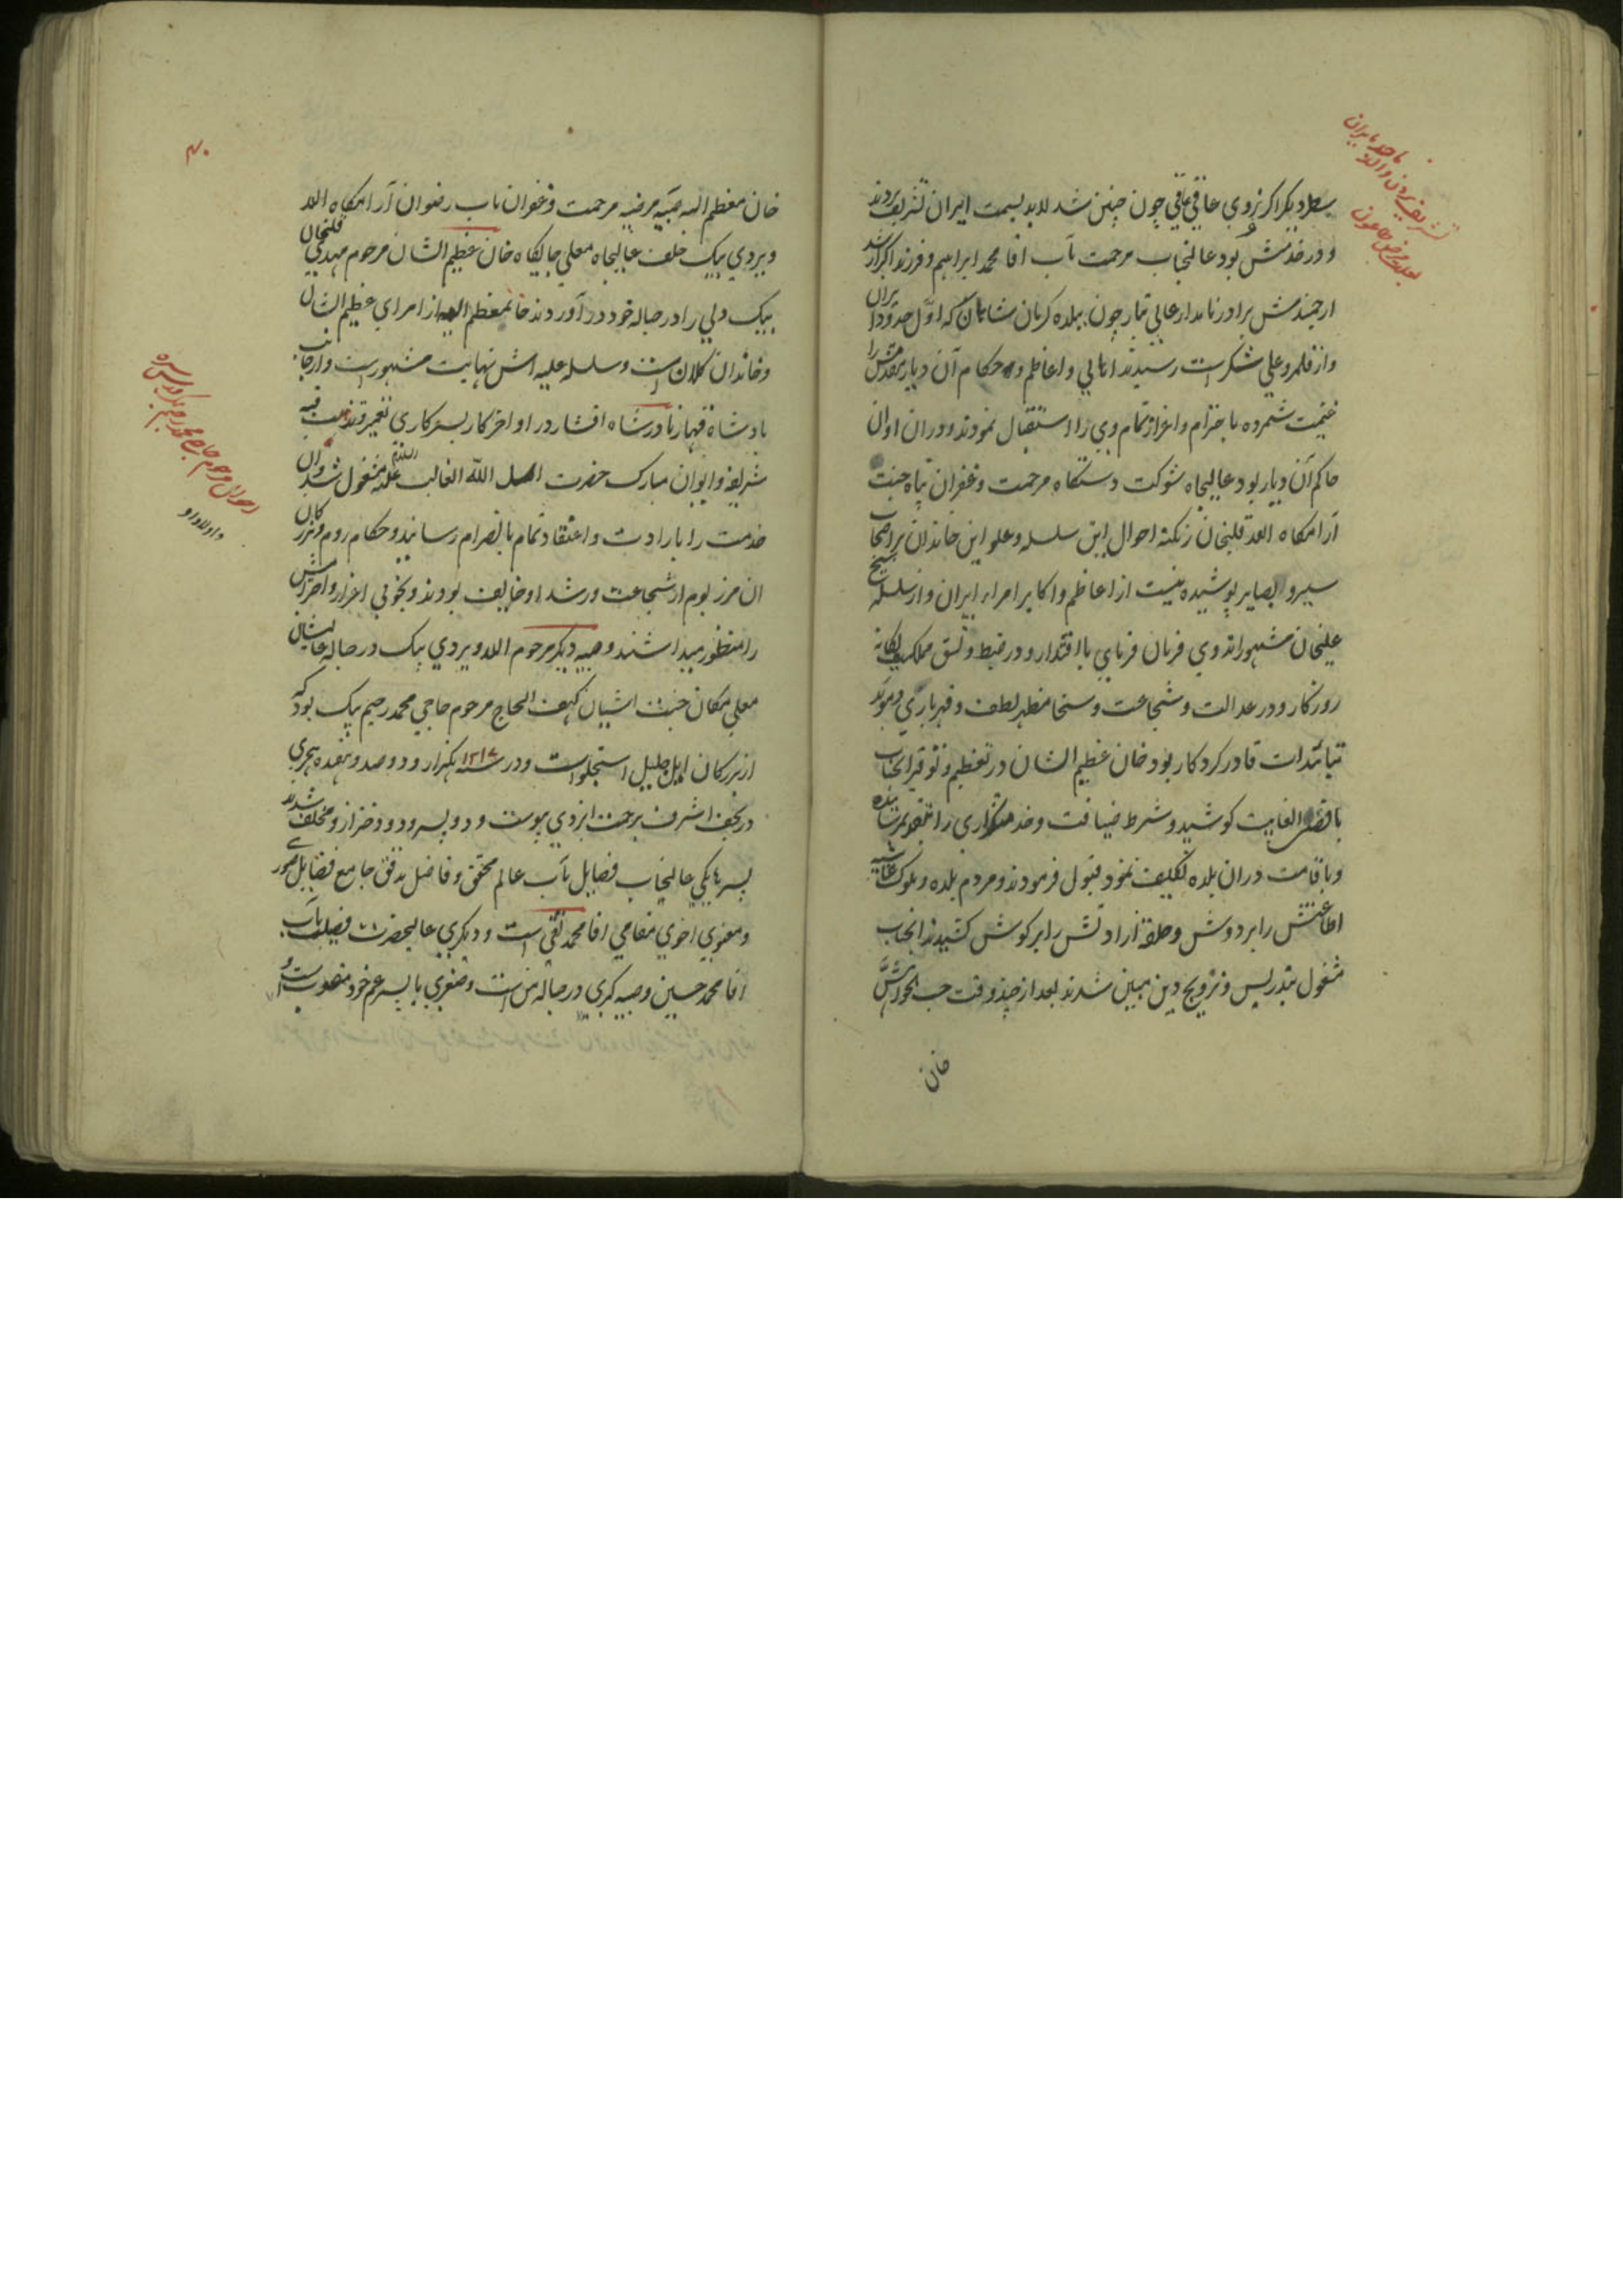 بسطام دیگر اگر نروی عاقی عاقی چون چنین شد لابد بسمت ایران تشریف بردند
و در خدمتش بود عالیجناب مرحمت مآب اقا محمد ابراهیم و فرزند اکبر ارشد
ارجمندش برادر نامدار عالی تبار چون ببلده کرمان شاهان که اول حدود ایران
و از قلمرو علی شکر است رسیدند اهالی و اعاظم و حکام آن دیار مقدمش را
غنیمت شمرده با حترام و اعزاز تمام وی را استقبال نمودند و در ان اوان
حاکم آن دیار بود عالیجاه شوکت دستگاه مرحمت و غفران پناه جنت
آرامگاه الله قلیخان زنکنه احوال این سلسله و علو این خاندان بر اصحاب
سیر و ابصایر پوشیده نیست از اعاظم و اکابر امراء ایران و از سلسله شیخ
علیخان مشهور اند وی فرمان فرمای با اقتدار و در ضبط و نسق مملکت یکانه
روزکار و در عدالت و شجاعت و سخا مظهر لطف و قهر باری و موید
بتائیدات قادر کردکار بود خان عظیم الشان در تعظیم و توقیر انجناب
باقصی الغایت کوشید و شرط ضیافت و خدمتکذاری را بتقدیم رسانیده
و باقامت در ان بلده تکلیف نمود قبول فرمودند و مردم بلده و بلوک غاشیه
اطاعتش را بر دوش و حلقه ارادتش را بر کوش کشیدند انجناب
مشغول بتدریس و ترویج دین مبین شدند بعد از چند وقت حسب الخواهش
خان
تشریف بردن والد
ماجد بایران
بعلت مرض طاعون
۴۰
خان معظم الیه صبیه مرضیه مرحمت و غفران مآب رضوان آرامگاه الله
ویردی بیک خلف عالیجاه معلی جایکاه خان عظیم الشان مرحوم مهدی قلیخان
بیک دلی را در حباله خود در آوردند خان معظم الیه از امرای عظیم الشان
و خاندان کلان است و سلسله علیه اش نهایت مشهور است و از جانب
پادشاه قهار نادر شاه افشار در اواخر کار بسرکاری تعمیر و تذهیب قبه
شریفه و ایوان مبارک حضرت اسد الله الغالب علیه السلام مشغول شد و ان
خدمت را بارادت و اعتقاد تمام بانصرام رسانید و حکام روم و بزرکان
ان مرز بوم از شجاعت و رشد او خایف بودند و بخوبی اعزاز و احترامش
را منظور میداشتند و صبیه دیکر مرحوم الله ویردی بیک در حباله عالیشان
معلی مکان جنت اشیان کهف الحاج مرحوم حاجی محمد رحیم بیک بود که
از بزرکان ایل جلیل استجلو است و در سنه ۱۲۱۷ یکهزار و دو صد و هفده هجری
در نجف اشرف برحمت ایزدی پیوست و دو پسر و دو دختر از و مخلف شدند
پسرها یکی عالیجناب فضایل مآب عالم محقق و فاضل مدقق جامع فضایل صوری
و معنوی اخوی مقامی اقا محمد تقی است و دیکری عالیحضرت فضیلت مآب
اقا محمد حسین و صبیه کبری در حباله من است و صغری با پسر عم خود منصوب است و
احوال مرحوم حاجی محمد رحیم بیک
و اولاد او